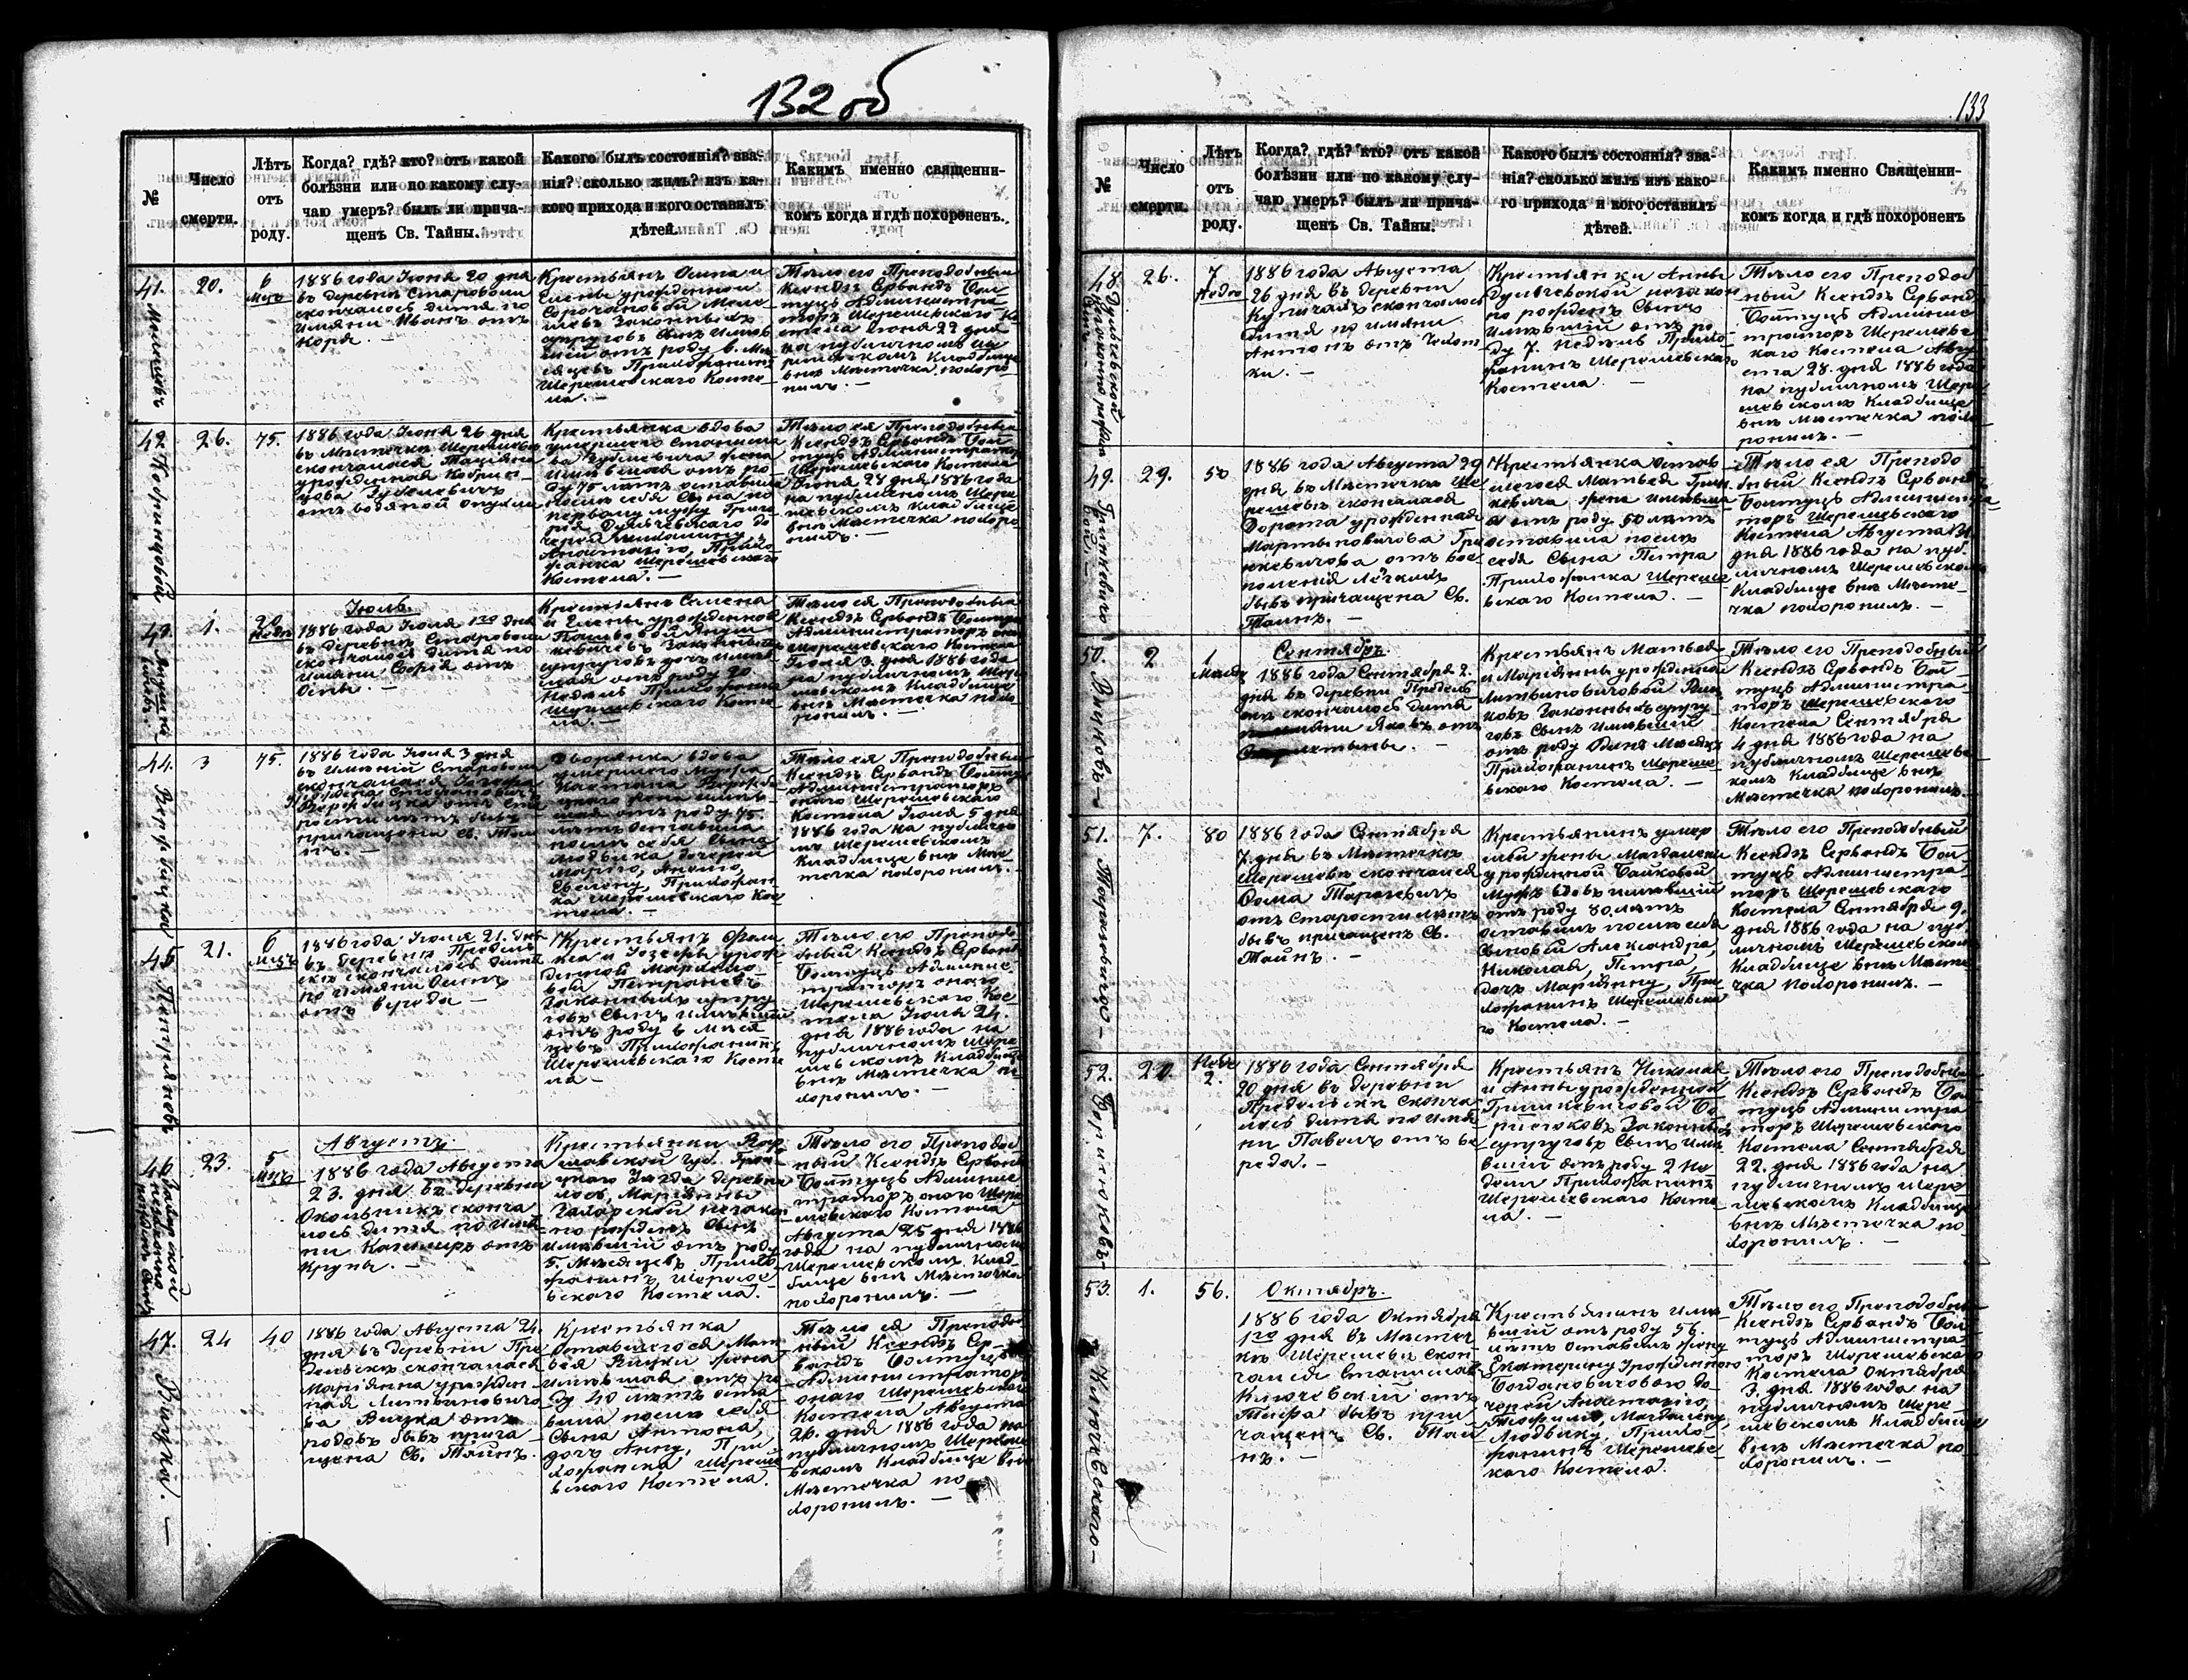 132 об
№
Число
смерти.
Лѣтъ
отъ
роду.
Когда? гдѣ? кто? отъ какой
болѣзни или по какому слу-
чаю умеръ? былъ ли прича-
щенъ Св. Тайны.
Какого былъ состоянія? зва-
нія? сколько жилъ? изъ ка-
кого прихода и кого оставилъ
дѣтей.
Какимъ именно священни-
комъ когда и гдѣ похороненъ.
41.
20.
6
Мцъ
1886 года Іюня 20 дня
въ деревни Староволи
скончалось дитя по
имяни Иванъ отъ
коря. —
Крестьянъ Осипа и
Елены урожденной
законныхъ
супруговъ Сынъ имѣв
шій отъ роду 6. Мѣ
сяцевъ Прихожанинъ
Шерешевскаго Косте
ла. —
Тѣло его Преподобный
Ксендзъ Сервандъ Бол
туць Администра
торъ Шерешевскаго Ко
стела Іюня 22 дня
на публичномъ
кладбище
внѣ Мѣстечка похоро
нилъ. —
42.
26.
75.
1886 года Іюня 26 дня
въ Мѣстечкѣ Шерешевѣ
скончалася
урожденная
отъ водяной опухли
Крестьянка вдова
умершего
жена
имѣвшая отъ ро
ду 75 лѣтъ оставила
послѣ себя Сына по
первому мужу Григо
рія до
черей
Анастазію, Прихо
жанка Шерешевскаго
Костела. —
Тѣло ея Преподобный
Ксендзъ Сервандъ Бол
туць Администраторъ
Шерешевскаго Костела
Іюня 28 дня 1886 года
на публичномъ Шере
шевскомъ кладбище
внѣ Мѣстечка похоро
нилъ. —
43.
1.
20
недѣ
Іюль.
1886 года Іюля 1го дня
въ деревни Староволи
скончалось дитя по
имяни София отъ
Оспы. —
Крестьянъ Семена
и Елены урожденной
законныхъ
супруговъ дочь имѣв
шая отъ роду 20
недѣль Прихожанка
Шерешевскаго Косте
ла. —
Тѣло ея Преподобный
Ксендзъ Сервандъ Болтуць
Администраторъ
Шерешевскаго Костела
Іюля 3. дня 1886 года
на публичномъ Шере
шевскомъ Кладбище
внѣ Мѣстечка похо
ронилъ. —
44.
3
75.
1886 года Іюля 3 дня
въ имѣніи Староволи
скончалася
отъ ста
рости лѣтъ бывъ
причащена Св. Тай
нъ. —
Дворянка вдова
умершего мужа
жена имѣв
шая отъ роду 75.
лѣтъ оставила
послѣ себя Сына
Людвика дочерей
Марію,
Елену, Прихожан
ка Шерешевскаго Кос
тела. —
Тѣло ея Преподобный
Ксендзъ Сервандъ Болтуць
Администраторъ
онаго Шерешевскаго
Костела Іюля 5 дня
1886 года на публично
мъ Шерешевскомъ
Кладбище внѣ Мѣс
течка похоронилъ. —
45
21.
6
Мцъ
1886 года Іюля 21. дня
въ деревни Предель
скѣ скончалось дитя
по имяни Осипъ
отъ вереда —
Крестьянъ
и Іозефы урож
денной
Петранёвъ
законныхъ супру
говъ Сынъ имѣвшій
отъ роду 6 Мѣся
цевъ Прихожанинъ
Шерешевскаго Косте
ла —
Тѣло его Преподо
бный Ксендзъ Сервандъ
Болтуць Админис
траторъ онаго
Шерешевскаго Кос
тела Іюля 24.
дня 1886 года на
публичномъ Шере
шевскомъ Кладбище
внѣ Мѣстечка по
хоронилъ. —
46
23.
5
Мцъ
Августъ.
1886 года Августа
23. дня въ деревни
Окольникъ сконча
лось дитя по имя
ни Казимиръ отъ
Крупы. —
Крестьянки Вар
шавской Губ.
Уѣзда деревни
Маріянны
незакон
но рожденъ Сынъ
имѣвшій отъ роду
5. Мѣсяцевъ Прихо
жанинъ, Шереше
вскаго Костела. —
Тѣло его Преподоб
ный Ксендзъ Сервандъ
Болтуць Админис
траторъ онаго Шере
шевскаго Костела
Августа 25 дня 1886
года на публичномъ
Шерешевскомъ, Клад
бище внѣ Мѣстечка
похоронилъ. —
47.
24
40
1886 года Августа 24.
дня въ деревни Пре
дельскѣ скончалася
Маріянна урожден
ная Литвиновичо
ва Вицка отъ
родовъ бывъ прича
щена Св. Тайнъ. —
Крестьянка
оставшегося Мат
вея Вицки жена
имѣвшая отъ ро
ду 40 лѣтъ оста
вила послѣ себя
Сына Антона,
дочь Анну, При
хожанка Шереше
вскаго Костела.
Тѣло ея Преподоб
ный Ксендзъ Сер
вандъ Болтуць
Администраторъ
онаго Шерешевскаго
Костела Августа
26. дня 1886 года на
публичномъ Шереше
вскомъ Кладбище внѣ
Мѣстечка по
хоронилъ. —
133
№
Число
смерти.
Лѣтъ
отъ
роду.
Когда? гдѣ? кто? отъ какой
болѣзни или по какому слу-
чаю умеръ? былъ ли прича-
щенъ Св. Тайны.
Какого былъ состоянія? зва-
нія? сколько жилъ изъ како-
го прихода и кого оставилъ
дѣтей.
Какимъ именно Священни-
комъ когда и гдѣ похороненъ
48
26.
7
Недѣ
1886 года Августа
26 дня въ деревни
Купичахъ скончалось
дитя по имяни
Антонъ отъ Чехот
ки. —
Крестьянки Анны
Дульчевской незакон
но рожденъ Сынъ
имѣвшій отъ ро
ду 7. недѣль Прихо
жанинъ Шерешевскаго
Костела. —
Тѣло его Преподоб
ный Ксендзъ Сервандъ
Болтуць Админис
траторъ Шерешевс
каго Костела Авгу
ста 28. дня 1886 года
на публичномъ Шере
шевскомъ Кладбище
внѣ Мѣстечка похо
ронилъ. —
49.
29.
50
1886 года Августа 29
дня въ Мѣстечкѣ Ше
решевѣ скончалася
Дорота урожденная
Мартыновичова Гри
нкевичова отъ вос
паленія Лёгкихъ
бывъ причащена Св.
Тайнъ. —
Крестьянка остав
шегося Матвея Грин
кевича жена имѣвша
я отъ роду 50 лѣтъ
оставила послѣ
себя Сына Петра
Прихожанка Шереше
вскаго Костела. —
Тѣло ея Преподо
бный Ксендзъ Сервандъ
Болтуць Администра
торъ Шерешевскаго
Костела Августа 31
дня 1886 года на пуб
личномъ Шерешевскомъ
Кладбище внѣ Мѣсте
чка похоронилъ. —
50.
2
1
Мѣсяц
Сентябрь.
1886 года Сентября 2.
дня въ деревни Предель
скѣ скончалось дитя
Яковъ отъ
Крестьянъ Матвея
и Маріянны урожденной
Литвиновичовой
законныхъ супру
говъ Сынъ имѣвшій
отъ роду Одинъ Мѣсяцъ
Прихожанинъ Шереше
вскаго Костела. —
Тѣло его Преподобный
Ксендзъ Сервандъ Бол
туць Администра
торъ Шерешевскаго
Костела Сентября
4 дня 1886 года на
публичномъ Шерешевс
комъ Кладбище внѣ
Мѣстечка похоронилъ. —
51.
7.
80
1886 года Сентября
7. дня въ Мѣстечкѣ
Шерешевѣ скончался
Фома Тарасевичъ
отъ Старости лѣтъ
бывъ причащенъ Св.
Тайнъ. —
Крестьянинъ умер
шей жены Магдалены
урожденной Байковой
Мужъ вдовъ имѣвшій
отъ роду 80 лѣтъ
оставилъ послѣ себя
Сыновей Александра,
Николая, Петра,
дочь Маріянну, При
хожанинъ Шерешевска
го Костела. —
Тѣло его Преподобный
Ксендзъ Сервандъ Бол
туць Администра
торъ Шерешевскаго
Костела Сентября 9.
дня 1886 года на пуб
личномъ Шерешевскомъ
Кладбище внѣ Мѣсте
чка похоронилъ. —
52.
20
Недѣ
2.
1886 года Сентября
20 дня въ деревни
Предельскѣ сконча
лось дитя по имя
ни Павелъ отъ ве
реда. —
Крестьянъ Николая
и Анны урожденной
Гринкевичовой Бо
рисюковъ законныхъ
супруговъ Сынъ имѣ
вшій отъ роду 2 Не
дели Прихожанинъ
Шерешевскаго Косте
ла. —
Тѣло его Преподобный
Ксендзъ Сервандъ Бол
туць Администра
торъ Шерешевскаго
Костела Сентября
22. дня 1886 года на
публичномъ Шере
шевскомъ Кладбище
внѣ Мѣстечка по
хоронилъ. —
53.
1.
56.
Октябрь.
1886 года Октября
1го дня въ Мѣстеч
кѣ Шерешевѣ скон
чался Станиславъ
Ключевскій отъ
Тифа бывъ при
чащенъ Св. Тай
нъ. —
Крестьянинъ имѣ
вшій отъ роду 56.
лѣтъ оставилъ жену
Екатерину Урожденную
Богдановичовою до
черей Анастазію,
Теофилю, Магдалену,
Людвику, Прихо
жанинъ Шерешевс
каго Костела.
Тѣло его Преподобный
Ксендзъ Сервандъ Бол
туць Администра
торъ Шерешевскаго
Костела Октября
3. дня 1886 года на
публичномъ Шере
шевскомъ Кладбище
внѣ Мѣстечка по
хоронилъ. —